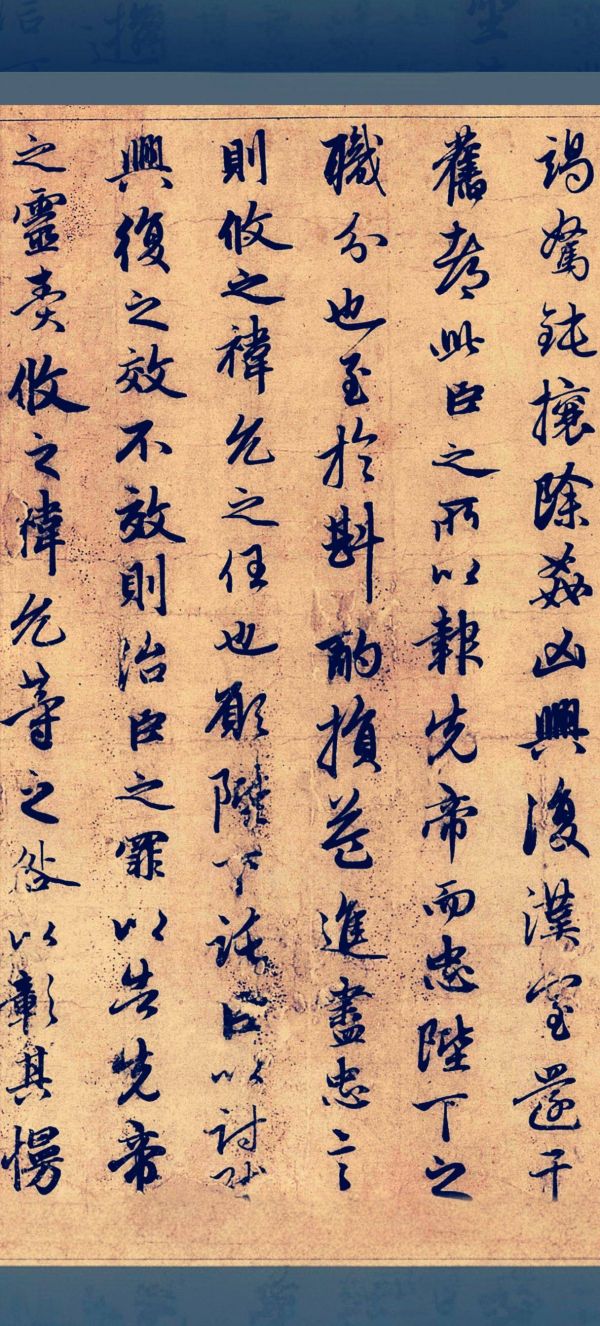 竭駑鈍攘除姦凶興復漢室還于
舊都此臣之所以報先帝而忠陛下之
職分也至於斟酌損益進盡忠言
則攸之禕允之任也願陛下託臣以討賊
興復之效不效則治臣之罪以告先帝
之靈責攸之禕允等之咎以彰其慢